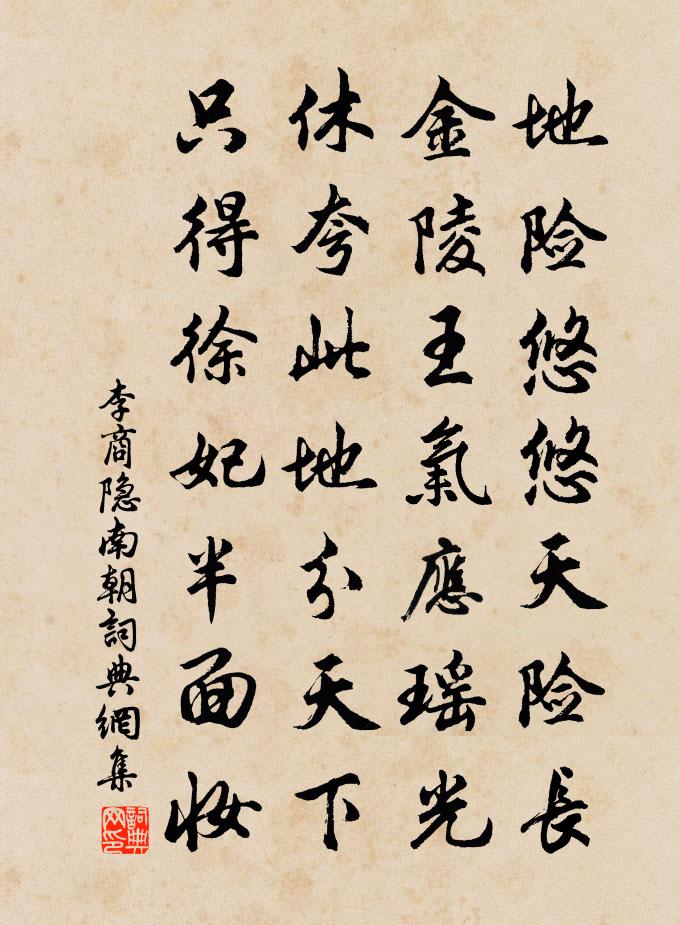 地险悠悠天险長
金陵王氣應瑶光
休夸此地分天下
只得徐妃半面妆
李商隐南朝詞典網集
詞典
网印